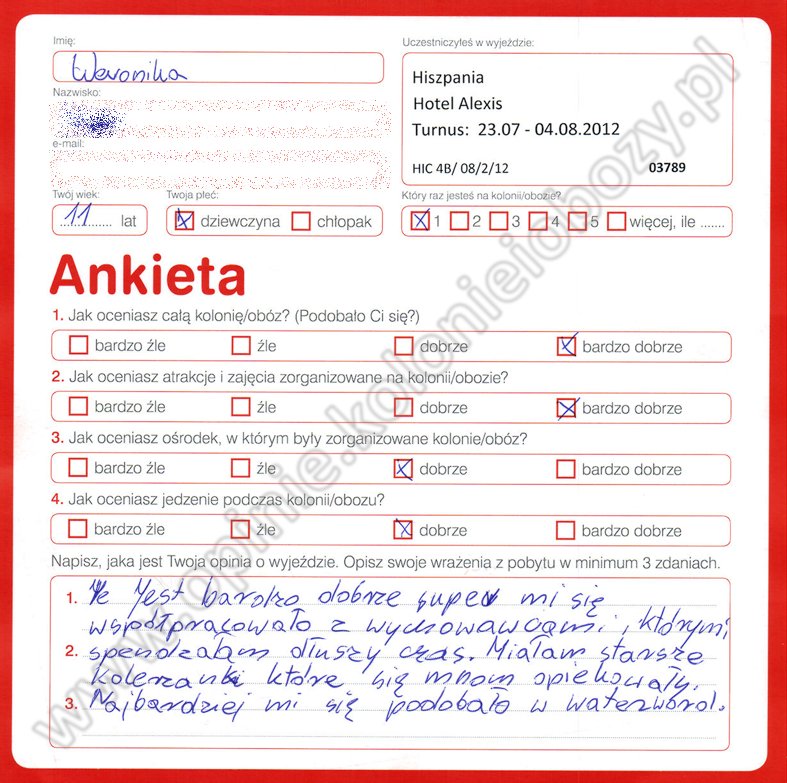 Imię:
Weronika
Nazwisko:
e-mail:
Uczestniczyłeś w wyjeździe:
Hiszpania
Hotel Alexis
Turnus: 23.07 - 04.08.2012
HIC 4B/ 08/2/12 03789
Twój wiek:
11 lat
Twoja płeć:
dziewczyna chłopak
Który raz jesteś na kolonii/obozie?
1 2 3 4 5 więcej, ile .......
Ankieta
1. Jak oceniasz całą kolonię/obóz? (Podobało Ci się?)
bardzo źle źle dobrze bardzo dobrze
2. Jak oceniasz atrakcje i zajęcia zorganizowane na kolonii/obozie?
bardzo źle źle dobrze bardzo dobrze
3. Jak oceniasz ośrodek, w którym były zorganizowane kolonie/obóz?
bardzo źle źle dobrze bardzo dobrze
4. Jak oceniasz jedzenie podczas kolonii/obozu?
bardzo źle źle dobrze bardzo dobrze
Napisz, jaka jest Twoja opinia o wyjeździe. Opisz swoje wrażenia z pobytu w minimum 3 zdaniach.
1. Że jest bardzo dobrze super mi się
współpracowało z wychowawcami, którymi
2. spendzałam dłuszy czas. Miałam starsze
kolerzanki które się mnom opiekowały.
3. Najbardziej mi się podobało w waterworld.
www.opinie.kolonieiobozy.pl